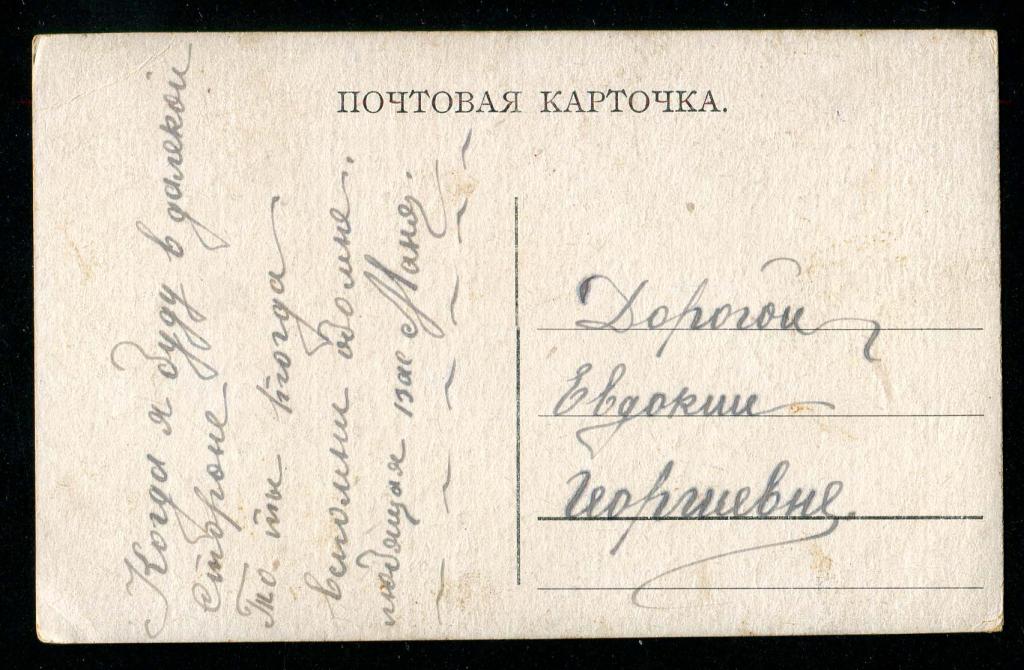 ПОЧТОВАЯ КАРТОЧКА.
Когда я буду в далекой
стороне
То ты тогда
вспомни обомне.
любящая вас Маня.
Дорогой
Евдокии
Георгиевне.